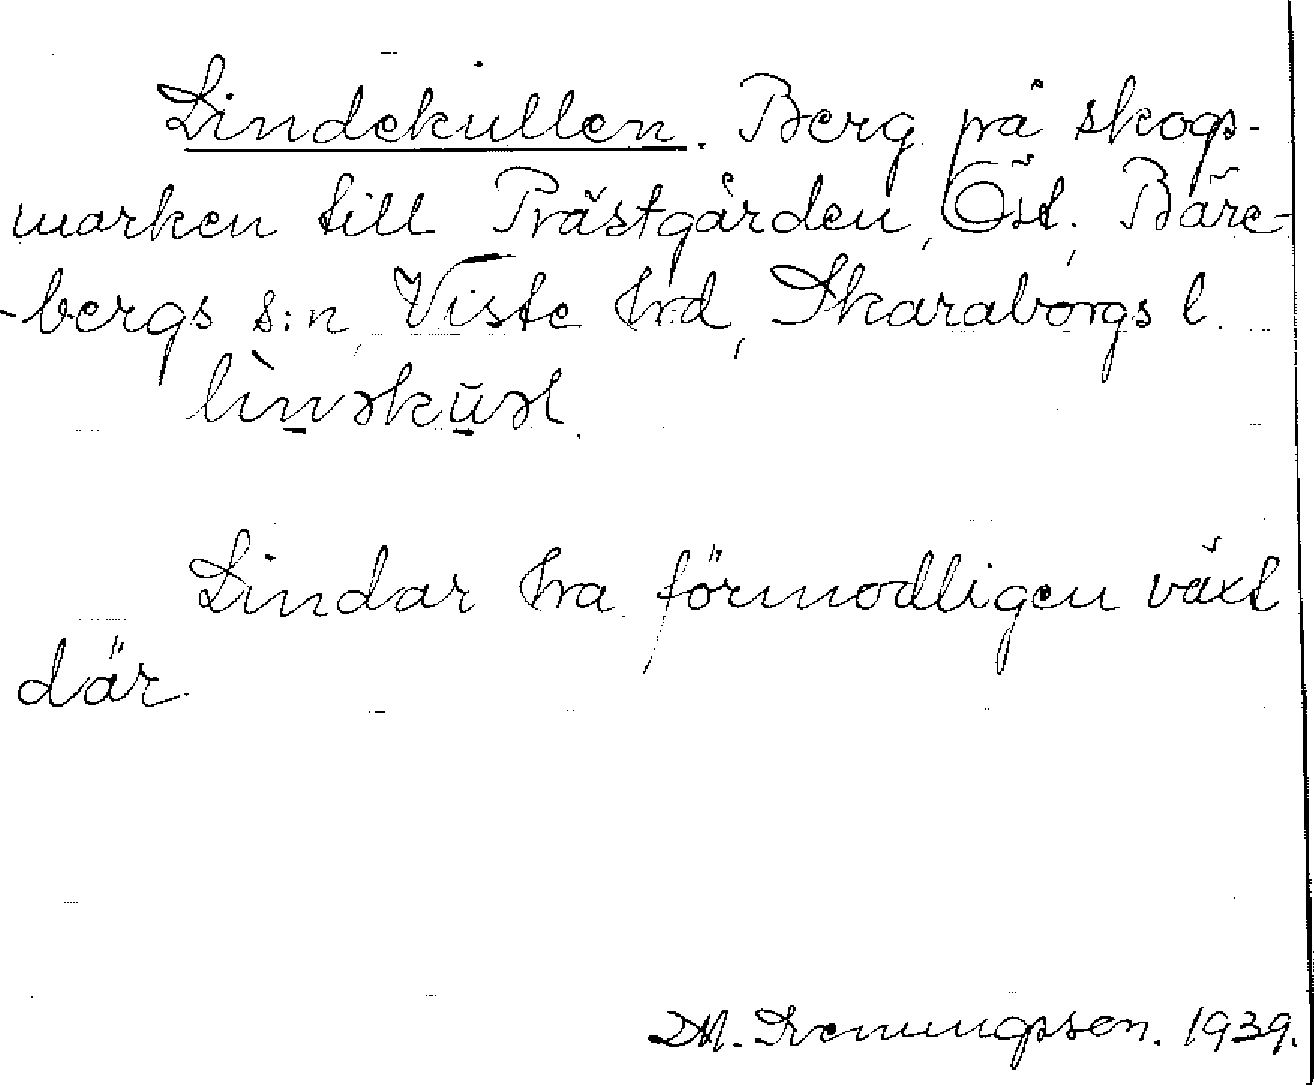 Lindekullen. Berg på skogs-
marken till Prästgården, Öst. Bäre-
-bergs s:n, Viste hrd, Skaraborgs l.
Lindar ha förmodligen växt
där
1939.